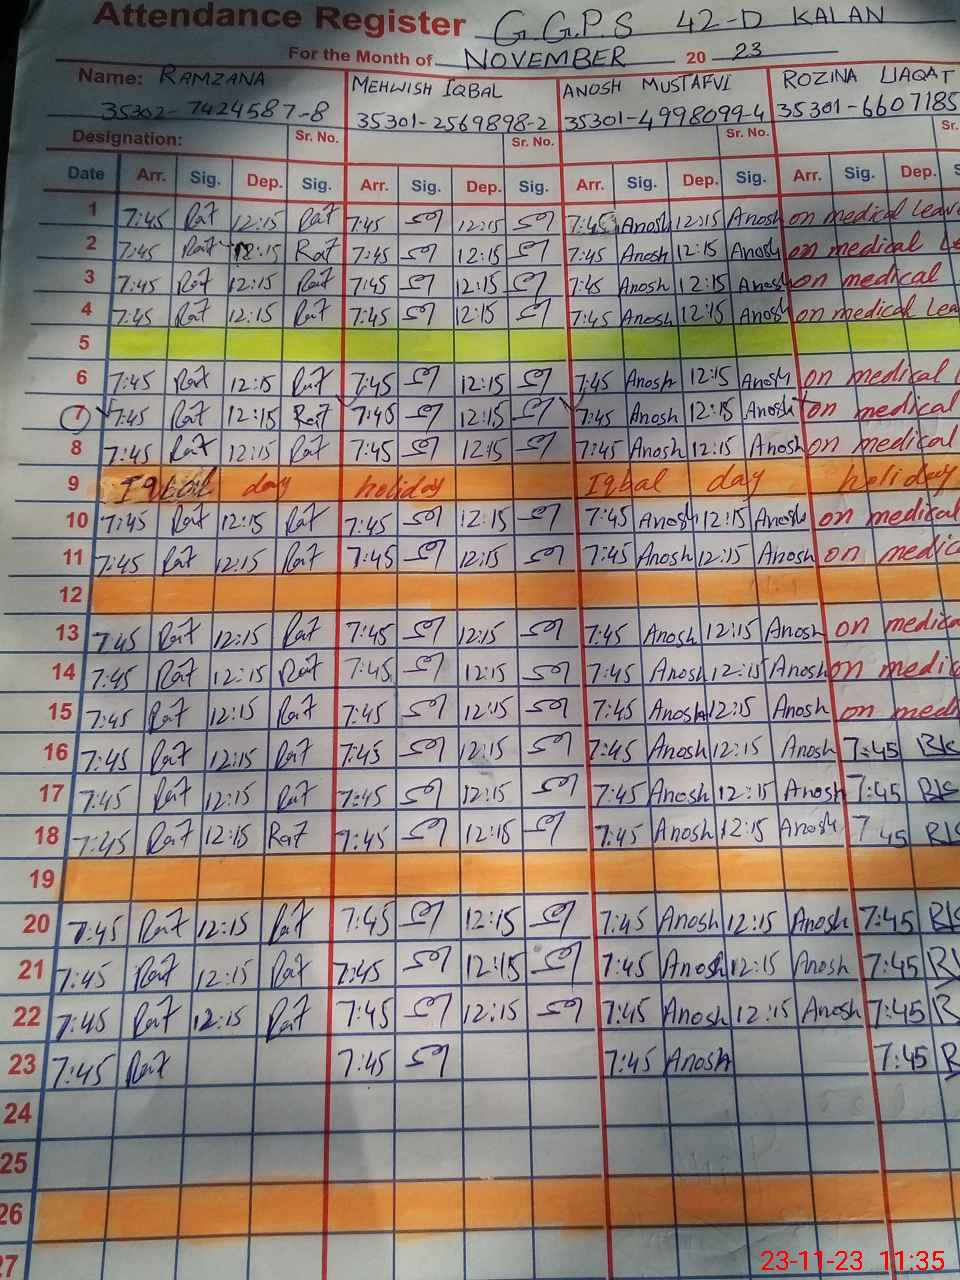 Attendance Register G.G.P.S 42-D KALAN
For the Month of NOVEMBER 20 23
Name: RAMZANA MEHWISH IQBAL ANOSH MUSTAFVI ROZINA LIAQAT
35302-7424587-8 35301-2569898-2 35301-4998099-4 35301-6607185
Designation: Sr. No. Sr. No. Sr. No. Sr.
Date Arr. Sig. Dep. Sig. Arr. Sig. Dep. Sig. Arr. Sig. Dep. Sig. Arr. Sig. Dep. S
1 7:45 12:15 7:45 12:15 7:45 Anosh 12:15 Anosh on medical Leave
2 7:45 12:15 7:45 12:15 7:45 Anosh 12:15 Anosh on medical Le
3 7:45 12:15 7:45 12:15 7:45 Anosh 12:15 Anosh on medical
4 7:45 12:15 7:45 12:15 7:45 Anosh 12:15 Anosh on medical Lea
5
6 7:45 12:15 7:45 12:15 7:45 Anosh 12:15 Anosh on medical
7 7:45 12:15 7:45 12:15 7:45 Anosh 12:15 Anosh on medical
8 7:45 12:15 7:45 12:15 7:45 Anosh 12:15 Anosh on medical
9 Iqbal day holiday Iqbal day holiday
10 7:45 12:15 7:45 12:15 7:45 Anosh 12:15 Anosh on medical
11 7:45 12:15 7:45 12:15 7:45 Anosh 12:15 Anosh on medic
12
13 7:45 12:15 7:45 12:15 7:45 Anosh 12:15 Anosh on medica
14 7:45 12:15 7:45 12:15 7:45 Anosh 12:15 Anosh on medic
15 7:45 12:15 7:45 12:15 7:45 Anosh 12:15 Anosh on medi
16 7:45 12:15 7:45 12:15 7:45 Anosh 12:15 Anosh 7:45
17 7:45 12:15 7:45 12:15 7:45 Anosh 12:15 Anosh 7:45
18 7:45 12:15 7:45 12:15 7:45 Anosh 12:15 Anosh 7 45
19
20 7:45 12:15 7:45 12:15 7:45 Anosh 12:15 Anosh 7:45
21 7:45 12:15 7:45 12:15 7:45 Anosh 12:15 Anosh 7:45
22 7:45 12:15 7:45 12:15 7:45 Anosh 12:15 Anosh 7:45
23 7:45 7:45 7:45 Anosh 7:45
24
25
26
27
23-11-23 11:35